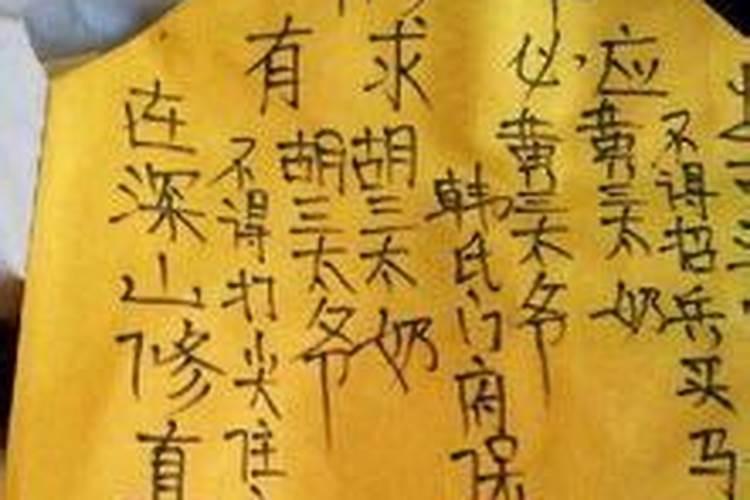 有求必应
在深山修
不得打尖住
胡三太爷
胡三太奶
韩氏门府保
黄三太爷
黄三太奶
不得招兵买马